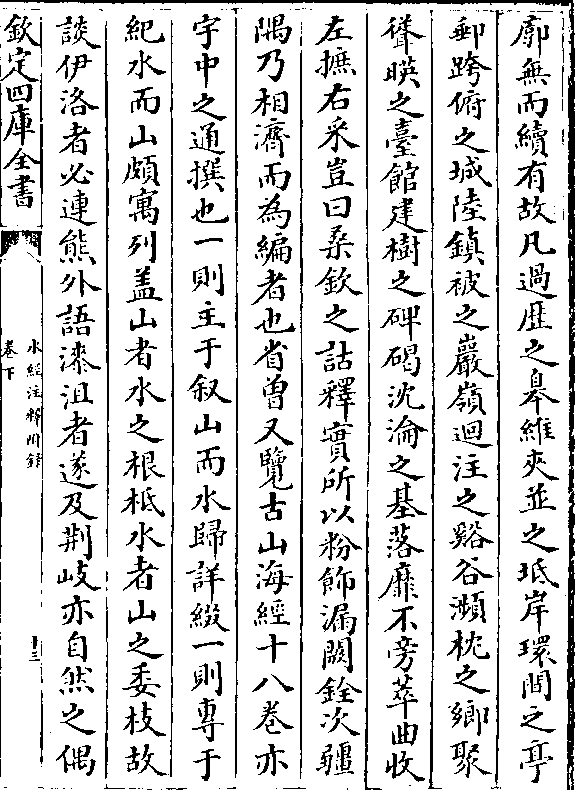 廓無而續有故凡過歴之臯維夾並之坻岸環間之亭
郵跨俯之城陸鎮被之巖嶺迴注之谿谷瀕枕之鄉聚
聳映之臺館建樹之碑碣沈淪之基落靡不旁萃曲收
左摭右采豈曰桑欽之詁釋實所以粉飾漏闕銓次疆
隅乃相濟而為編者也省曾又覽古山海經十八卷亦
宇中之通撰也一則主于叙山而水歸詳綴一則專于
紀水而山頗寓列盖山者水之根柢水者山之委枝故
談伊洛者必連熊外語漆沮者遂及荆岐亦自然之偶
欽定四庫全書
水經注釋附録
卷下
十三